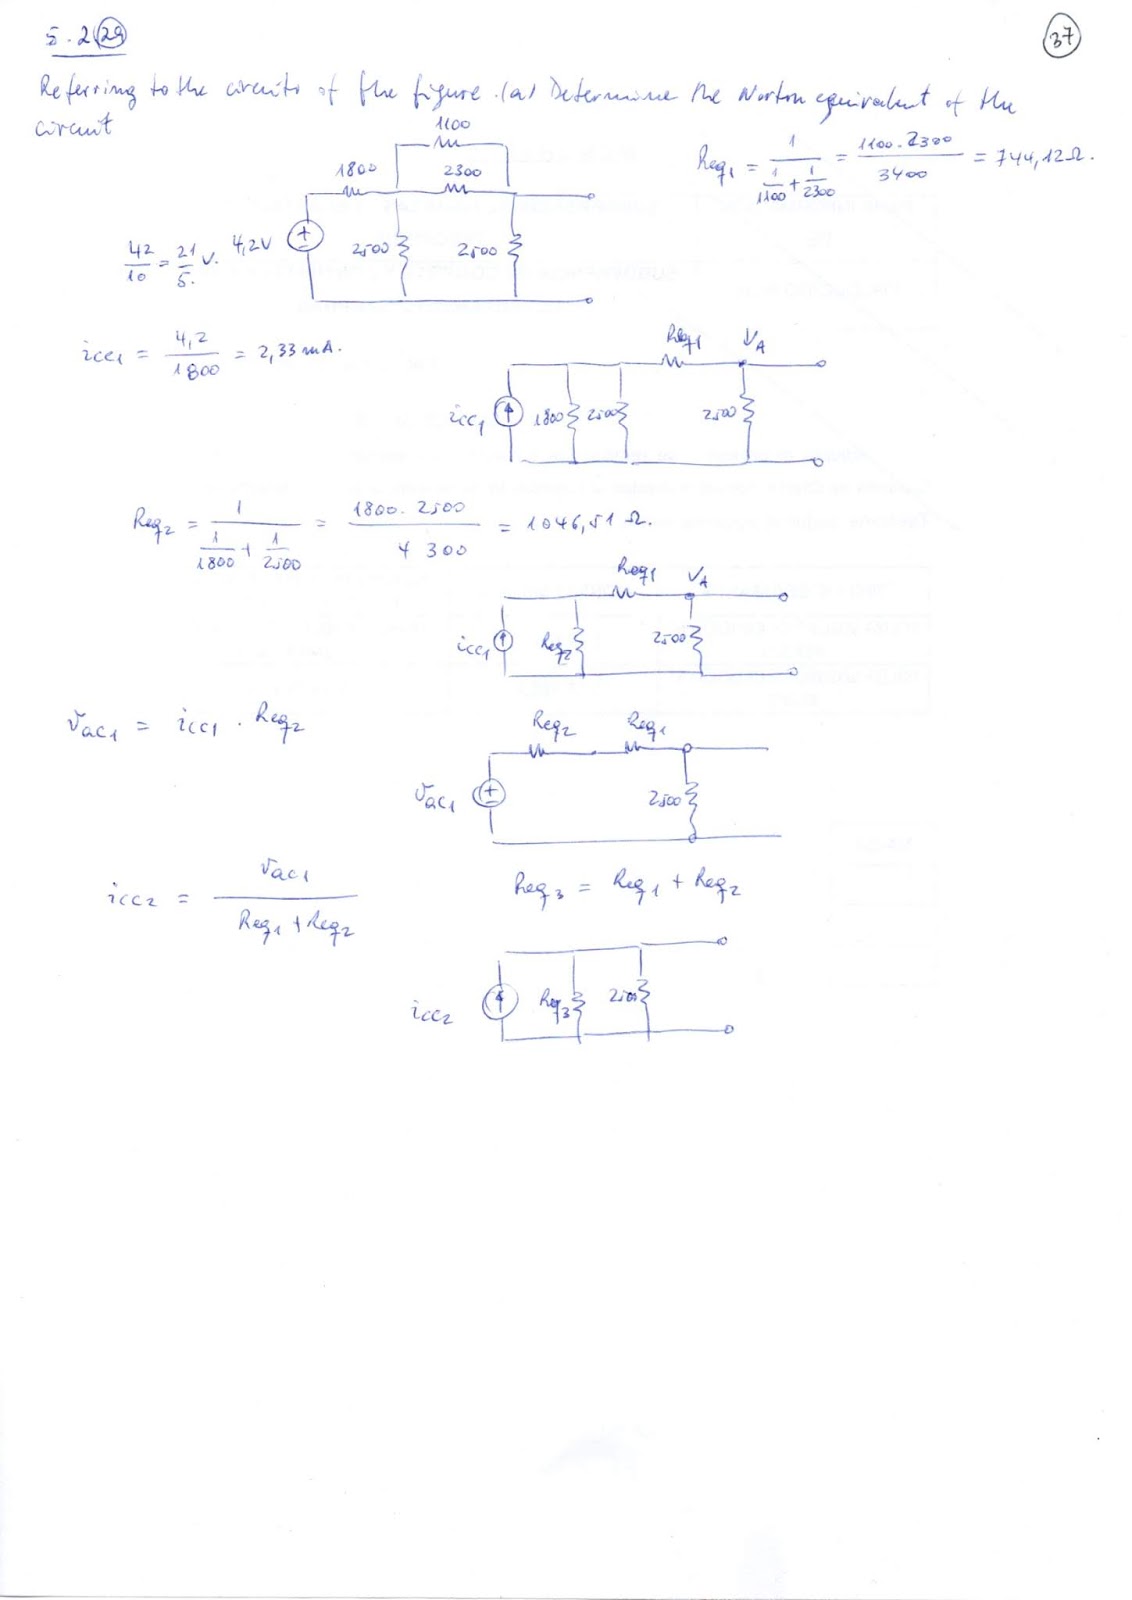 5.2 29
37
Referring to the circuits of the figure. (a) Determine the Norton equivalent of the
circuit
1100
1800 2300
2500 2500
4,2V
42/10 = 21/5 V.
Req1 = 1/(1/1100 + 1/2300) = 1100.2300/3400 = 744,12Ω.
icc1 = 4,2/1800 = 2,33 mA.
Req1 VA
icc1 1800 2500 2500
Req2 = 1/(1/1800 + 1/2500) = 1800.2500/4300 = 1046,51 Ω.
Req1 VA
icc1 Req2 2500
Vac1 = icc1 . Req2
Req2 Req1
Vac1 2500
icc2 = Vac1/(Req1 + Req2)
Req3 = Req1 + Req2
icc2 Req3 2500